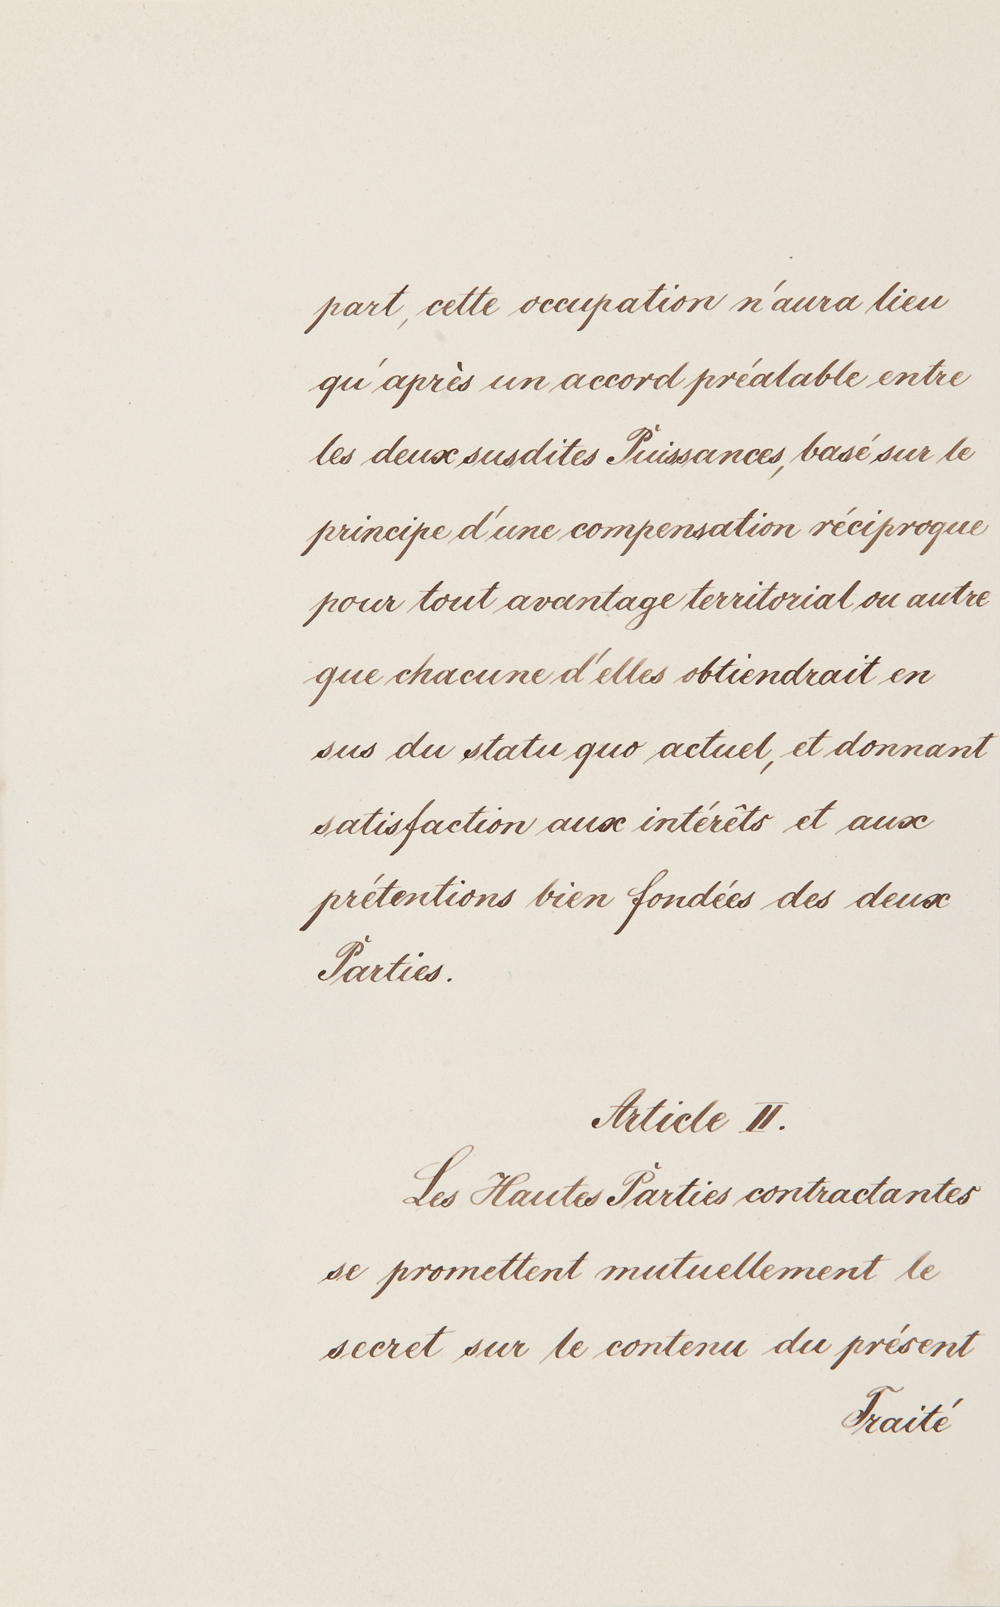 part, cette occupation n'aura lieu
qu'après un accord préalable entre
les deux susdites Puissances, basé sur le
principe d'une compensation réciproque
pour tout avantage territorial ou autre
que chacune d'elles obtiendrait en
sus du statu quo actuel, et donnant
satisfaction aux intérêts et aux
prétentions bien fondées des deux
Parties.
Article II.
Les Hautes Parties contractantes
se promettent mutuellement le
secret sur le contenu du présent
Traité